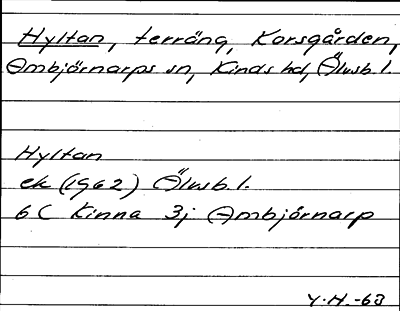 Hyltan, terräng, Korsgården,
Ambjörnarps sn, Kinds hd, Älvsb. l.
Hyltan
ek (1962) Älvsb. l.
6 C Kinna 3j Ambjörnarp
Y.H.-63